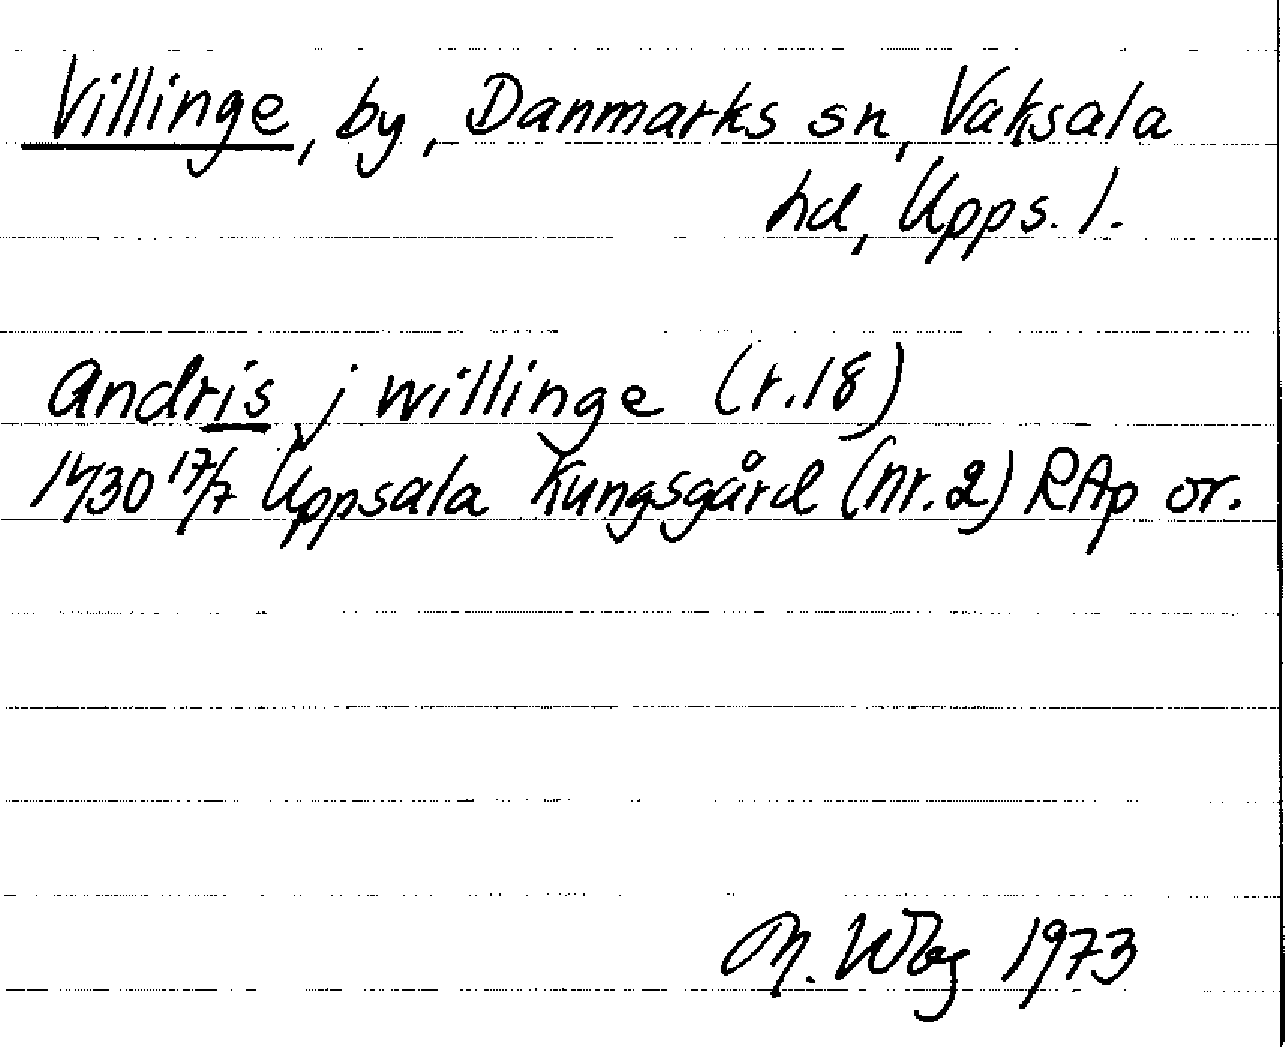 Villinge, by, Danmarks sn, Vaksala
hd, Upps. l.
Andris j willinge (r.18)
1430 17/7 Uppsala Kungsgård (nr.2) RAp or.
M. Wbg 1973